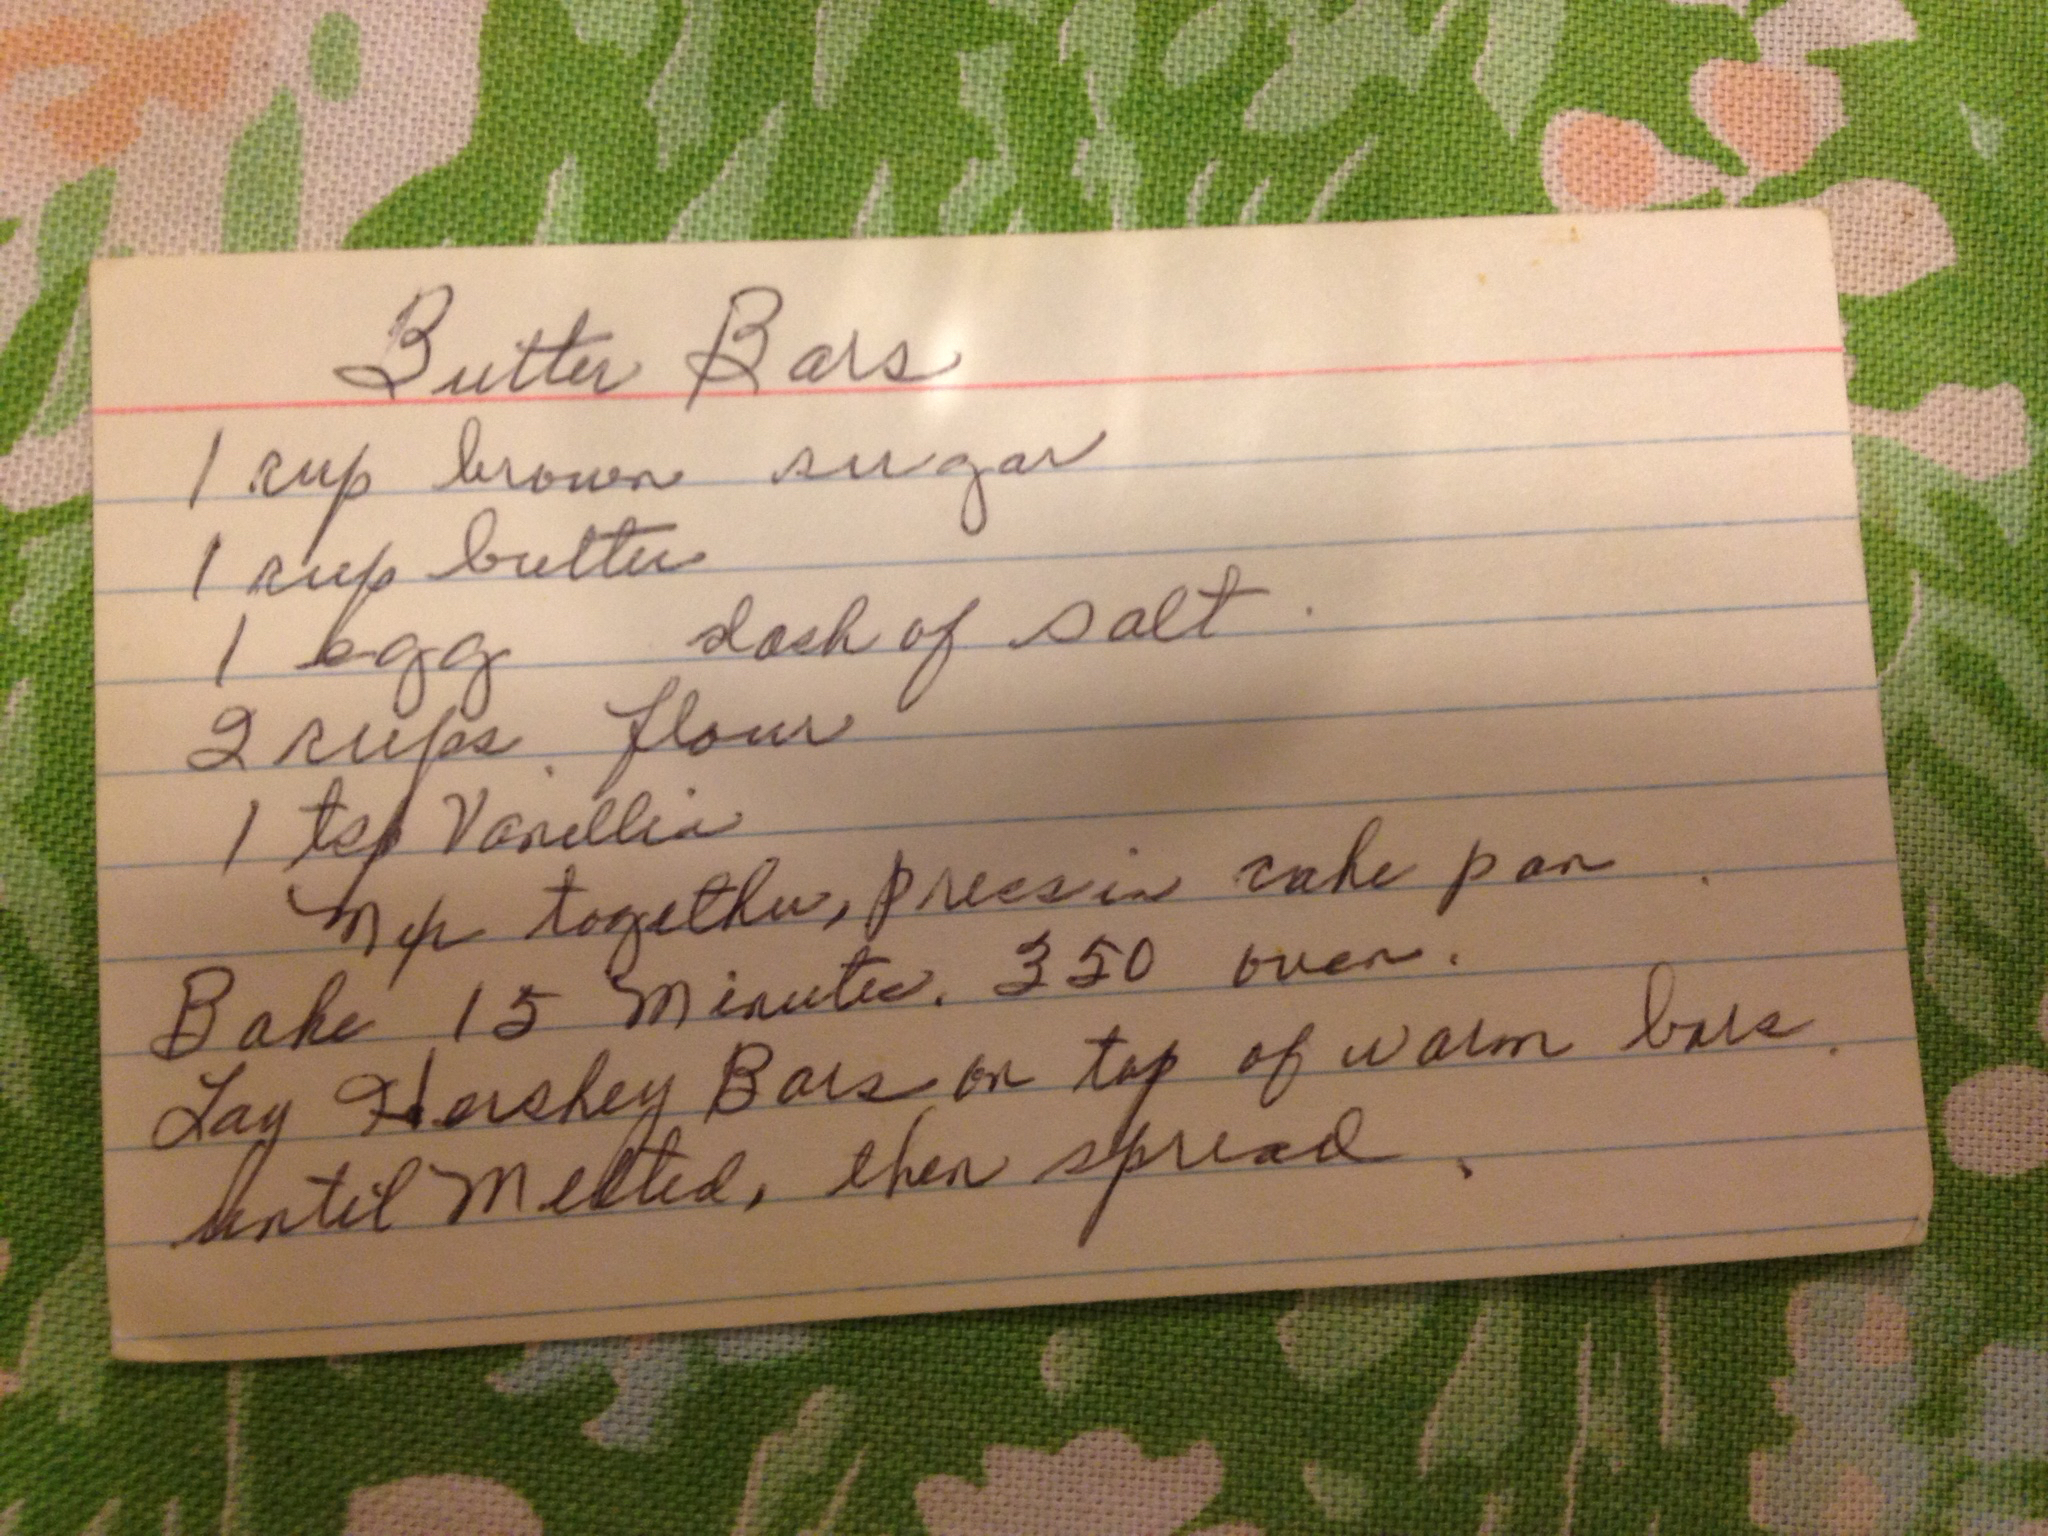 Butter Bars
1 cup brown sugar
1 cup butter
1 egg dash of salt.
2 cups flour
1 tsp Vanillia
Mix together, press in cake pan
Bake 15 Minutes. 350 oven.
Lay Hershey Bars on top of warm bars.
until Melted, then spread.